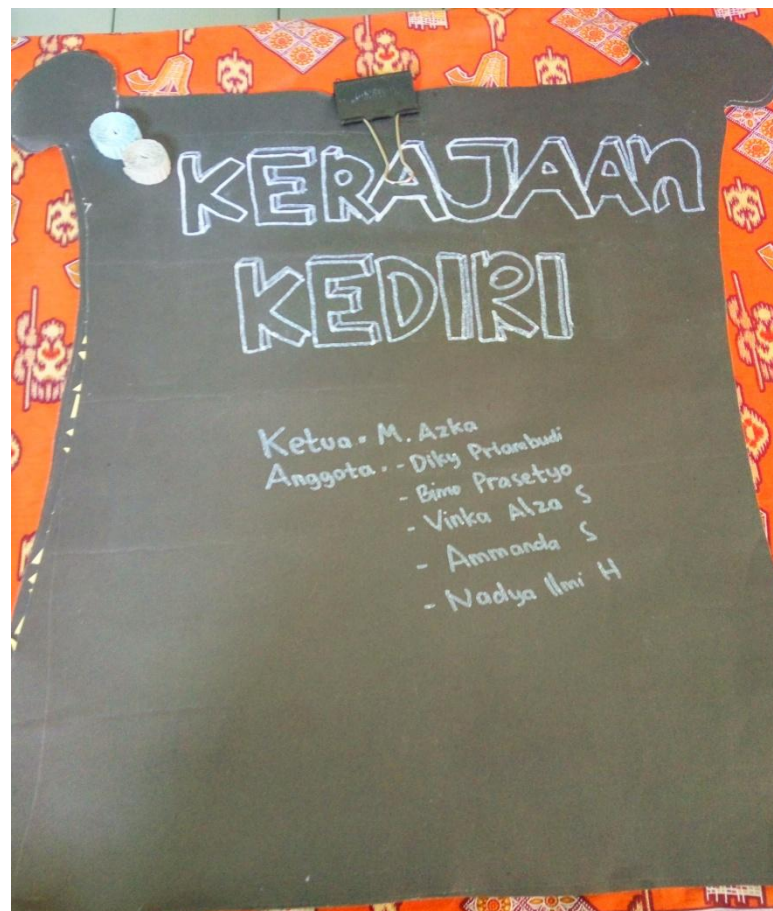 KERAJAAN
KEDIRI
Ketua. M. Azka
Anggota. - Diky Priambudi
- Bimo Prasetyo
- Vinka Alza S
- Ammanda S
- Nadya Ilmi H